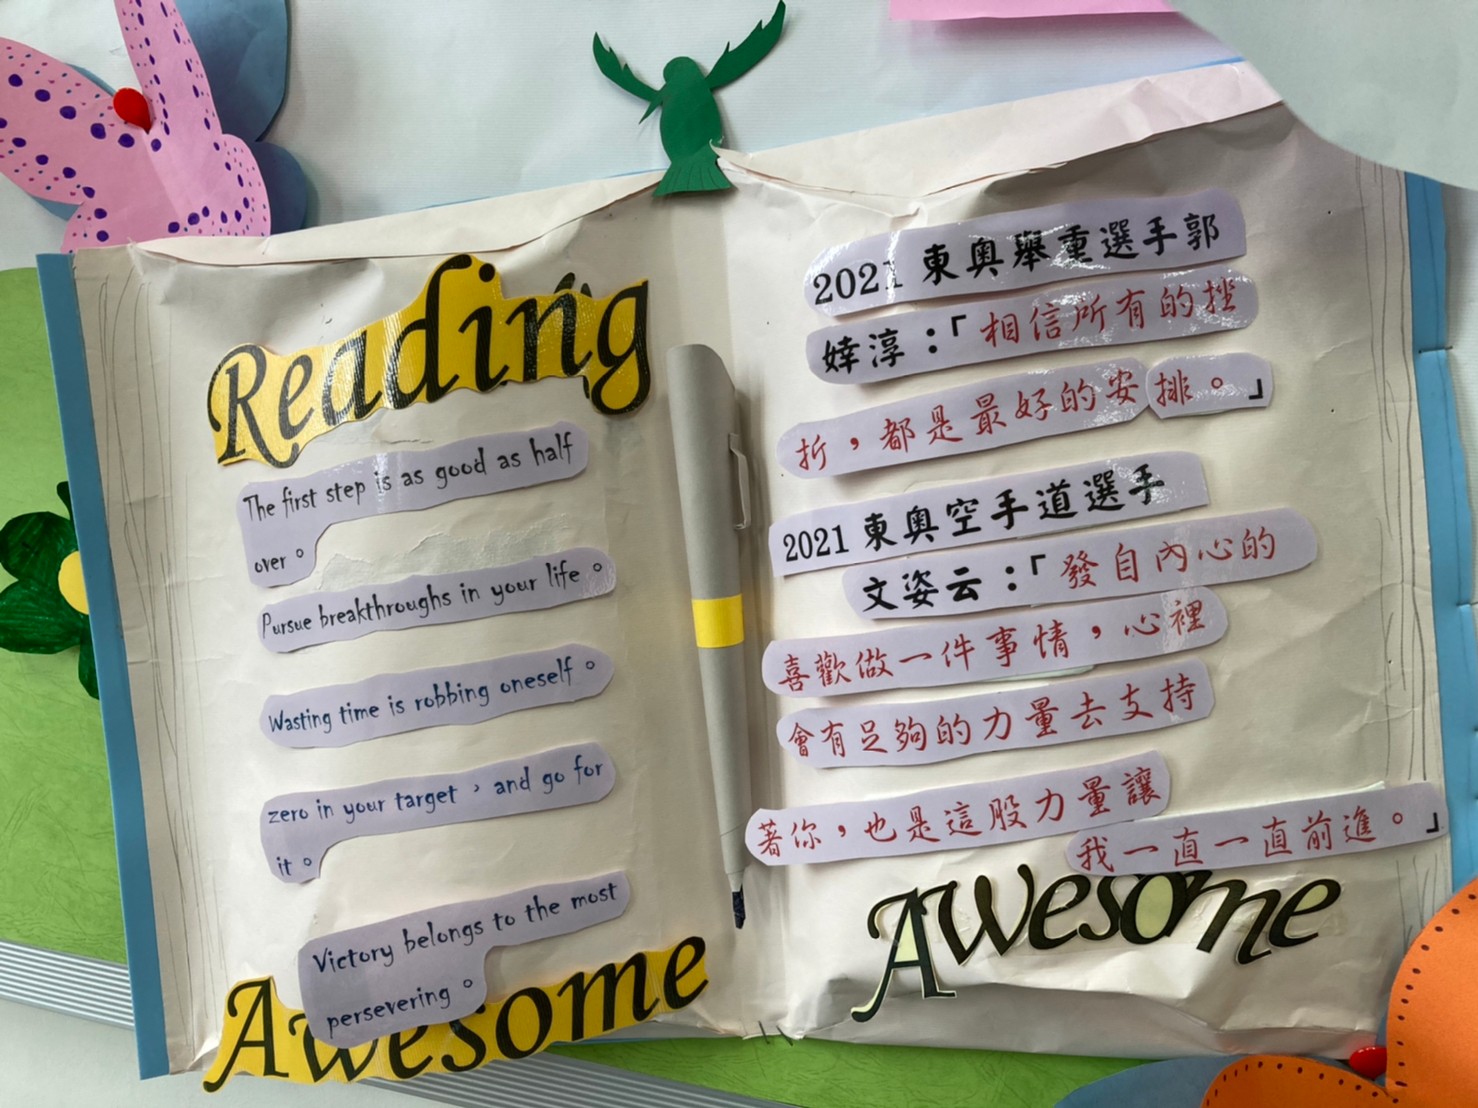 Reading
The first step is as good as half
over。
Pursue breakthroughs in your life。
Wasting time is robbing oneself。
zero in your target，and go for
it。
Victory belongs to the most
persevering。
Awesome
2021 東奧舉重選手郭
婞淳：「相信所有的挫
折，都是最好的安排。」
2021 東奧空手道選手
文姿云：「發自內心的
喜歡做一件事情，心裡
會有足夠的力量去支持
著你，也是這股力量讓
我一直一直前進。」
Awesome